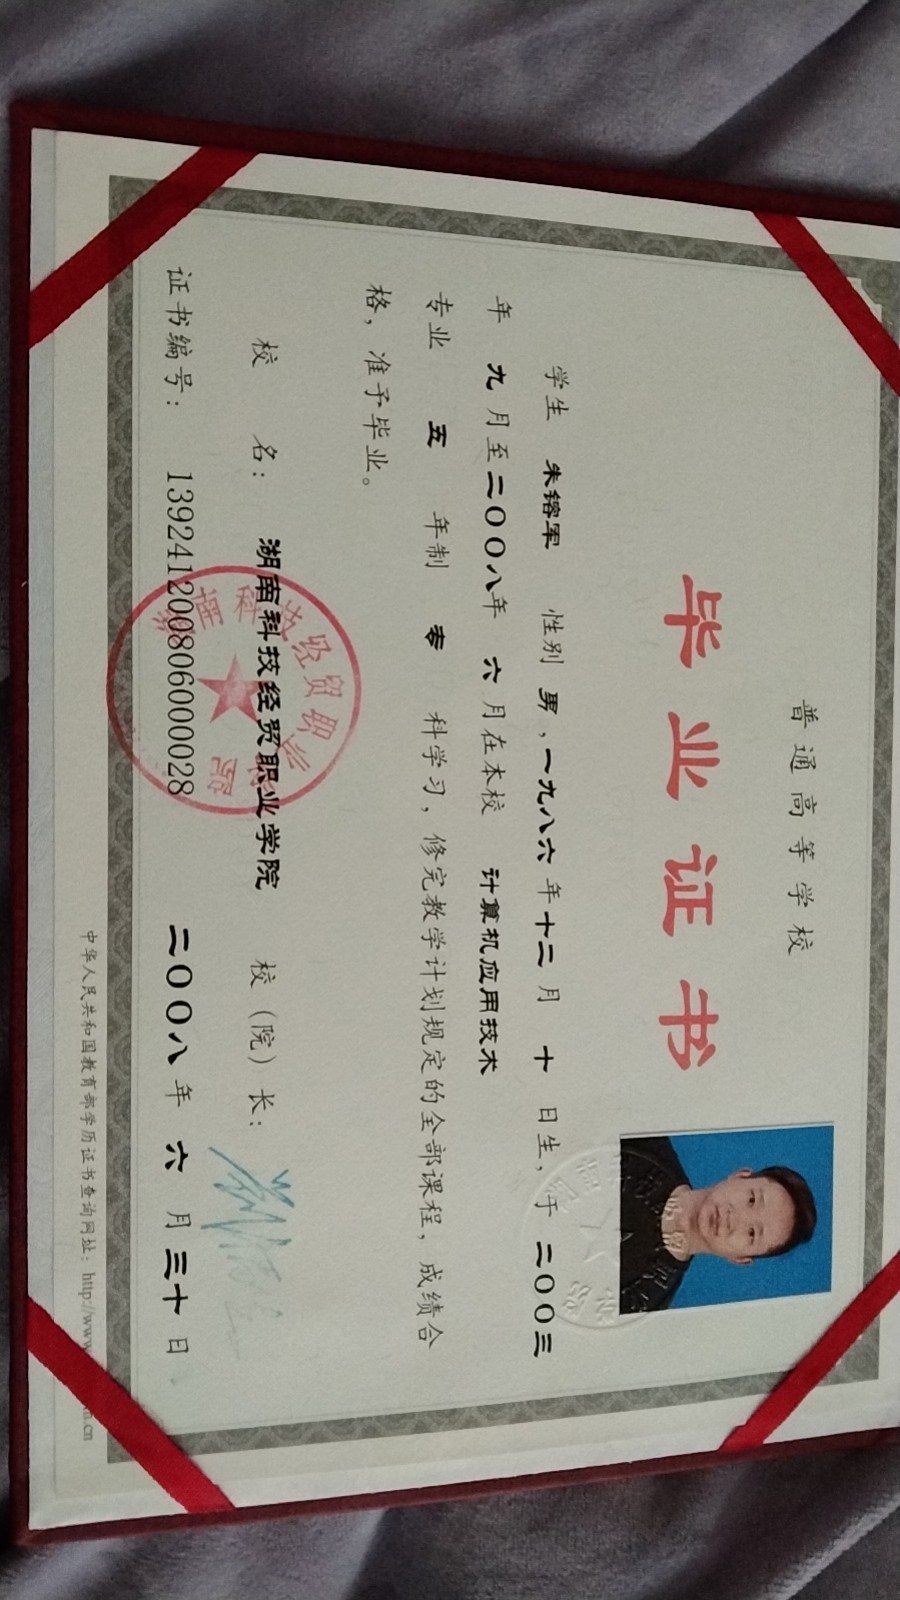 普通高等学校
毕业证书
学生 朱镕军 性别 男，一九八六年十二月 十 日生，于 二〇〇三
年 九 月至二〇〇八年 六 月在本校 计算机应用技术
专业 五 年制 专 科学习，修完教学计划规定的全部课程，成绩合
格，准予毕业。
校 名： 湖南科技经贸职业学院 校（院）长：
证书编号： 139241200806000028 二〇〇八年 六 月三十日
中华人民共和国教育部学历证书查询网址：http://www